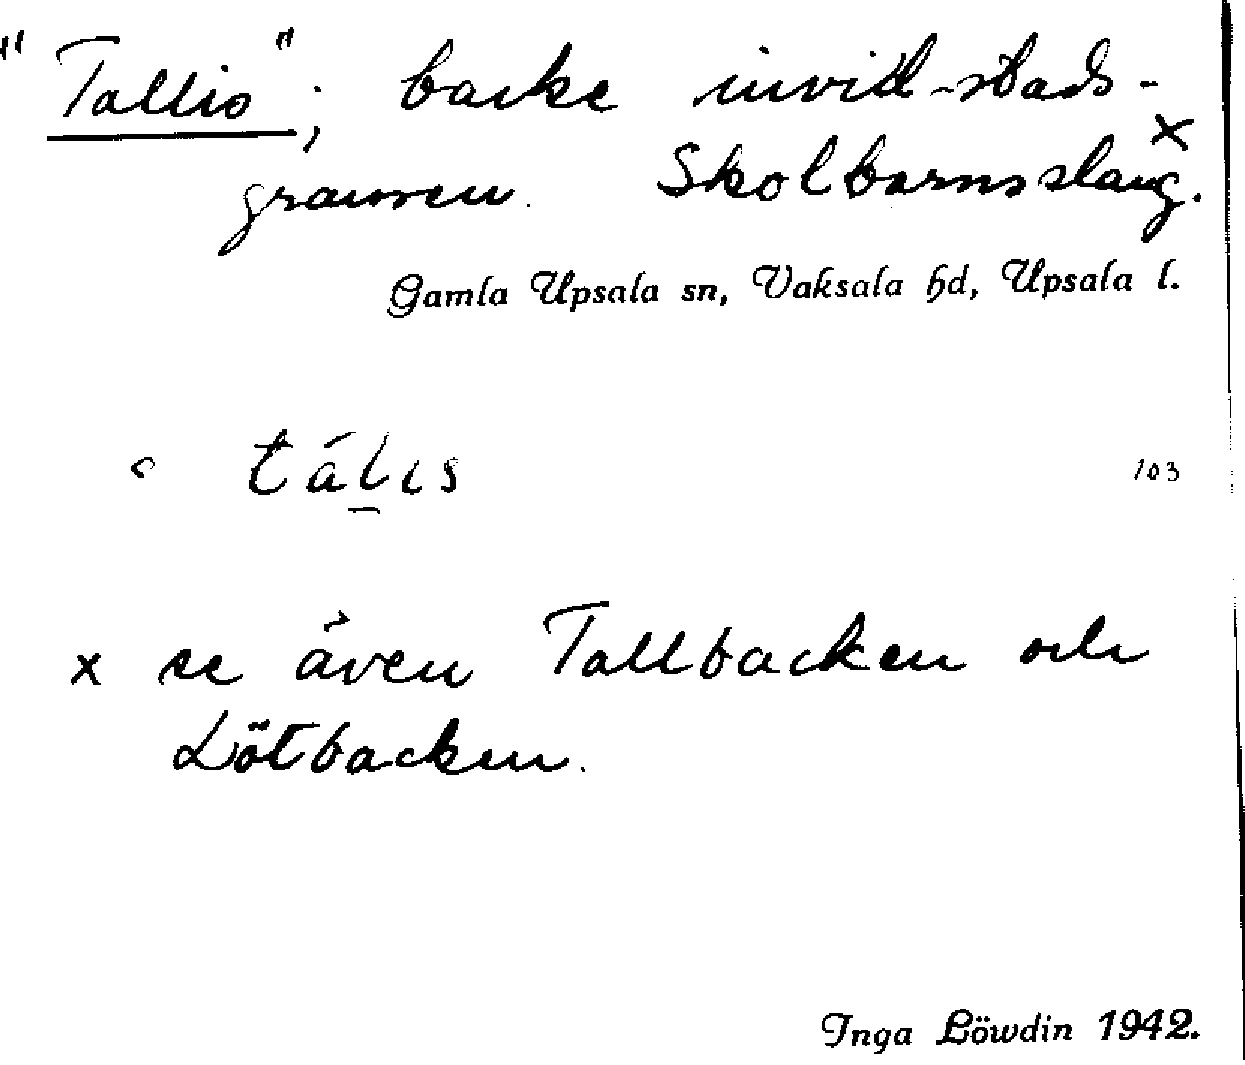 "Tallis"; backe invid stads-
gränsen. Skolbarnsslang.x
Gamla Upsala sn, Vaksala hd, Upsala l.
tál̲ıs 103
x se även Tallbacken och
Lötbacken.
Inga Löwdin 1942.